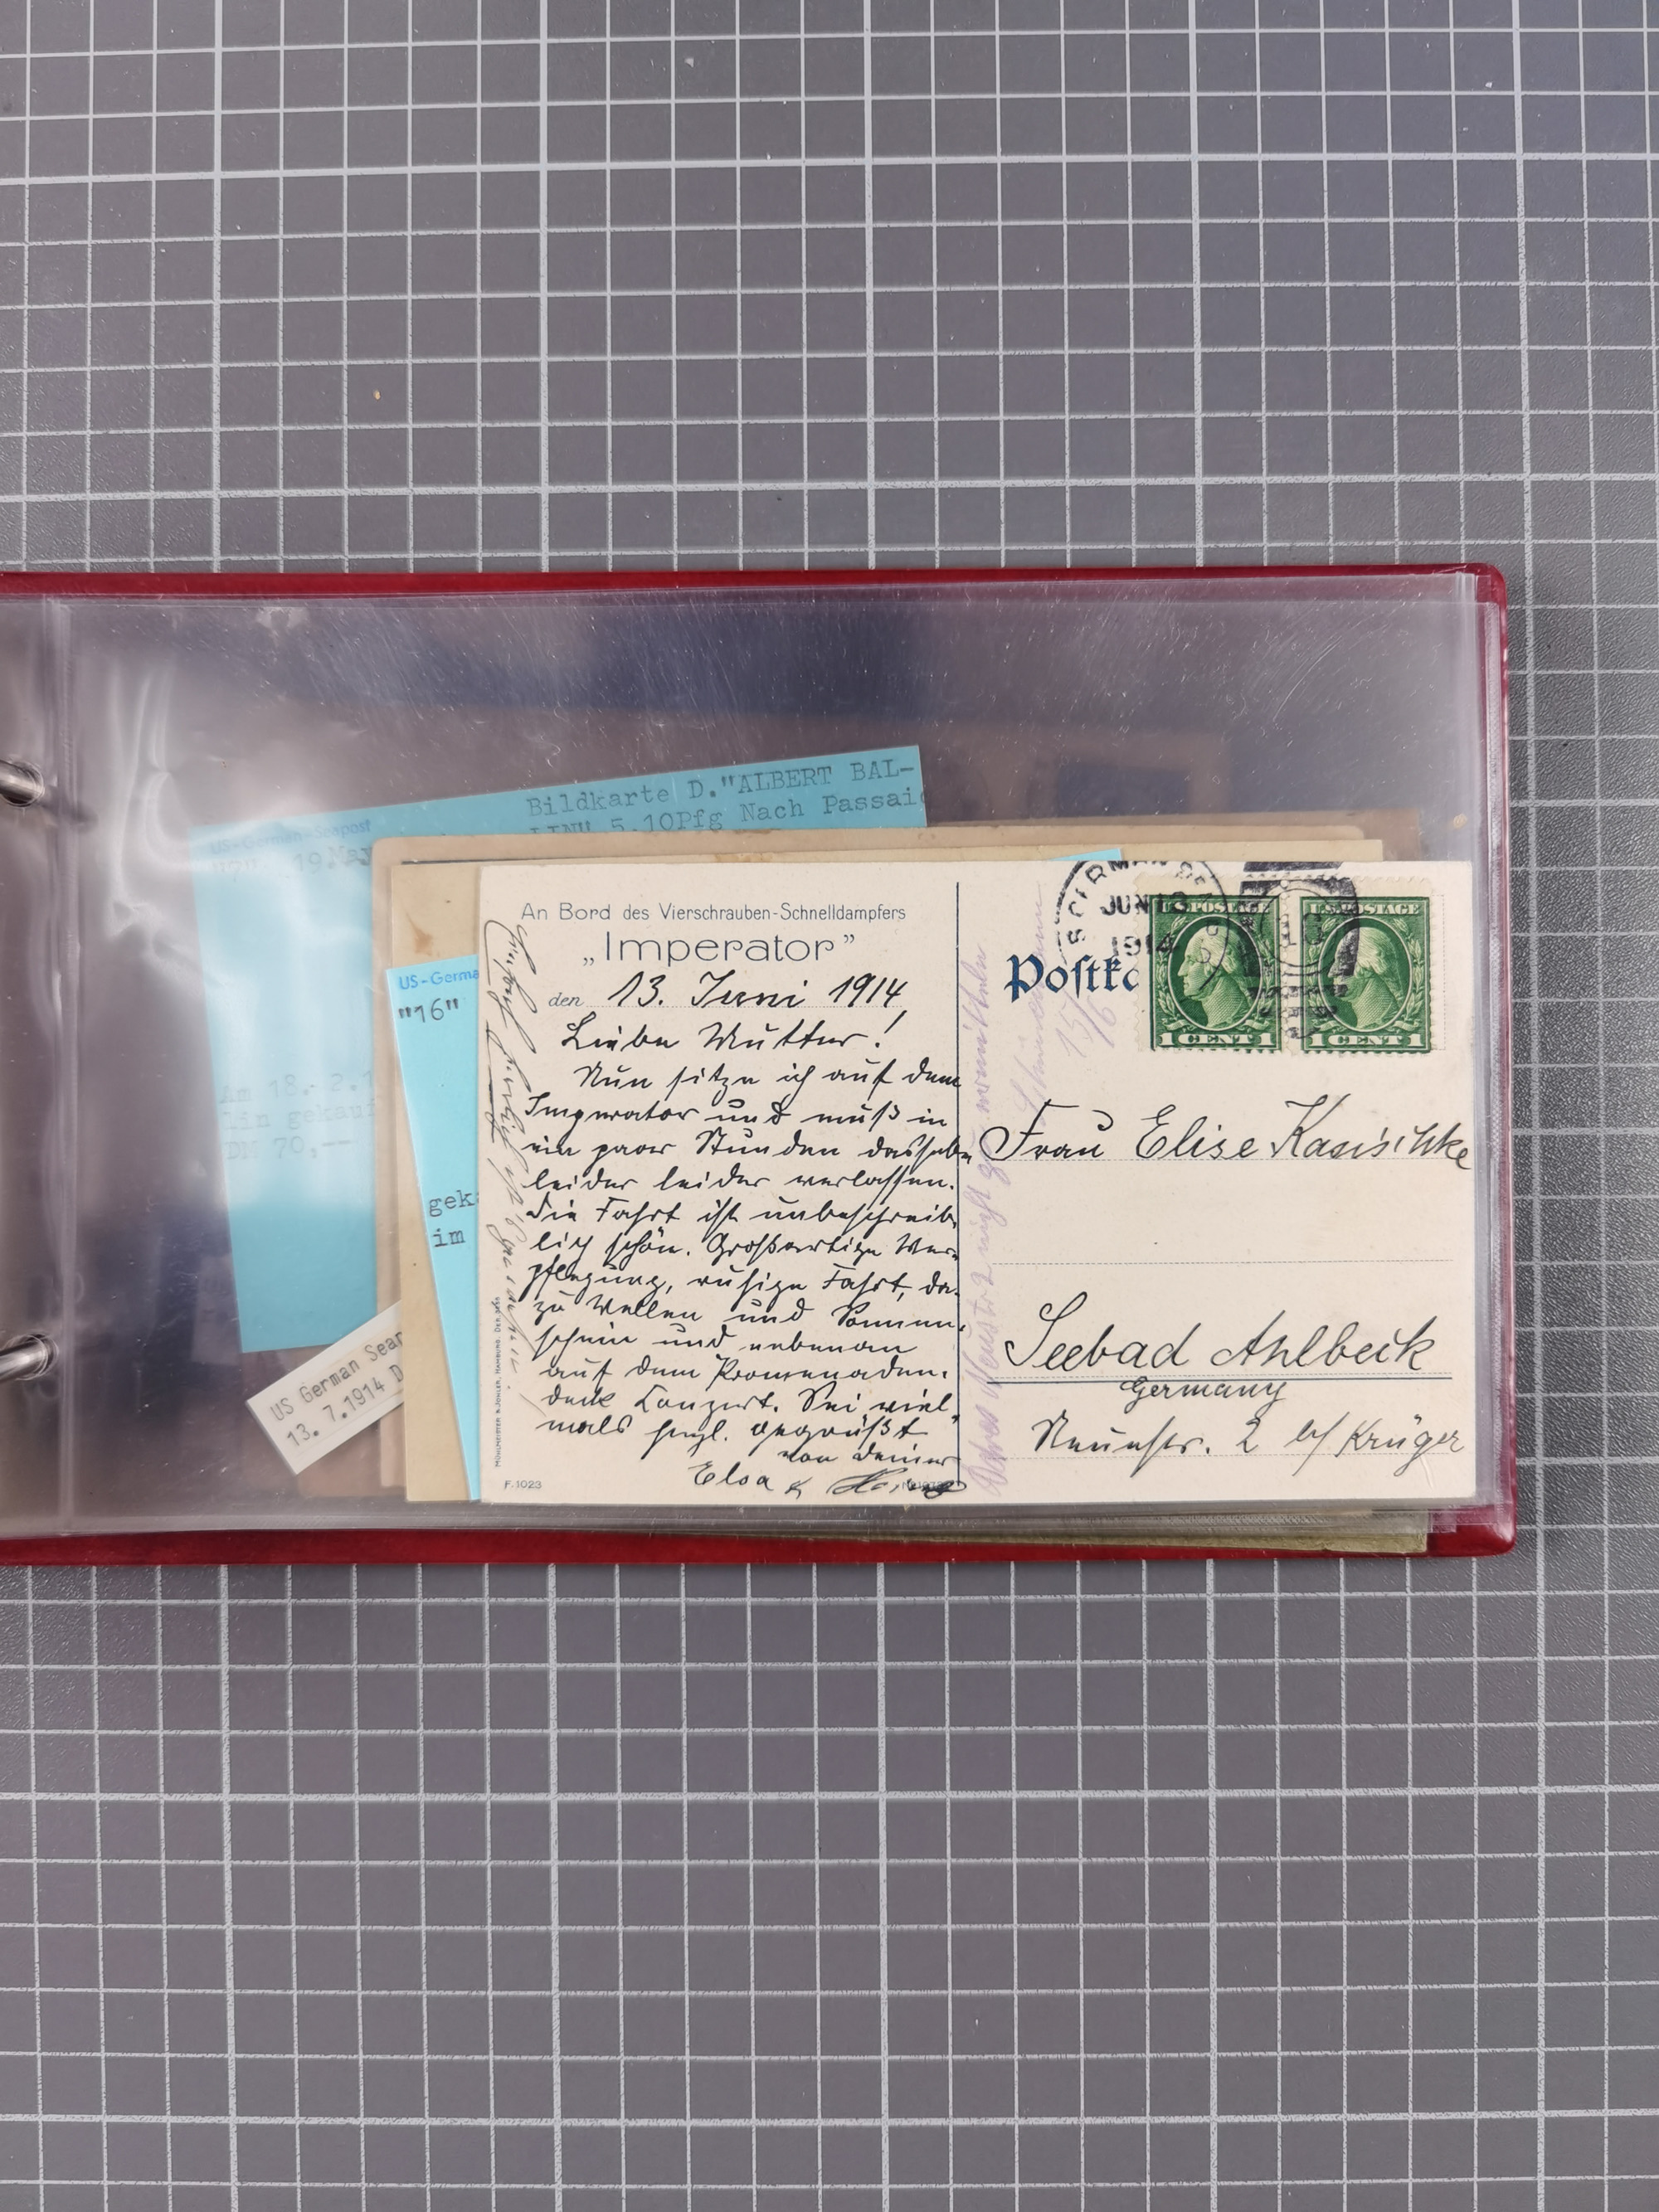 Bildkarte D."ALBERT BAL-
LIN" 5.10Pfg Nach Passaic
US-German-Seapost
19 May
Am 18. 2.1
gekauf
DM 70,—
US-Germa
"16"
gek
im
US German Seap
13. 7.1914 D
An Bord des Vierschrauben-Schnelldampfers
„Imperator”
den 13. Juni 1914,
Liebe Mutter!
Nun sitze ich auf dem
Imperator und muß in
ein paar Stunden dasselbe
leider leider verlassen.
Die Fahrt ist unbeschreib-
lich schön. Großartige Ver-
pflegung, ruhige Fahrt, da-
zu Wellen und Sonnen-
schein und nebenan
auf dem Promenaden-
deck Conzert. Sei viel-
mals herzl. gegrüßt
von Deiner
Elsa &
MÜHLMEISTER & JOHLER, HAMBURG.
F. 1023
GERMAN
JUN 13
1914
Postka
U.S. POSTAGE
1 CENT 1
U.S. POSTAGE
1 CENT 1
15/6
nicht zu ermitteln
Frau Elise Kasischke
Seebad Ahlbeck
Germany
Neuestr. 2 b/ Krüger